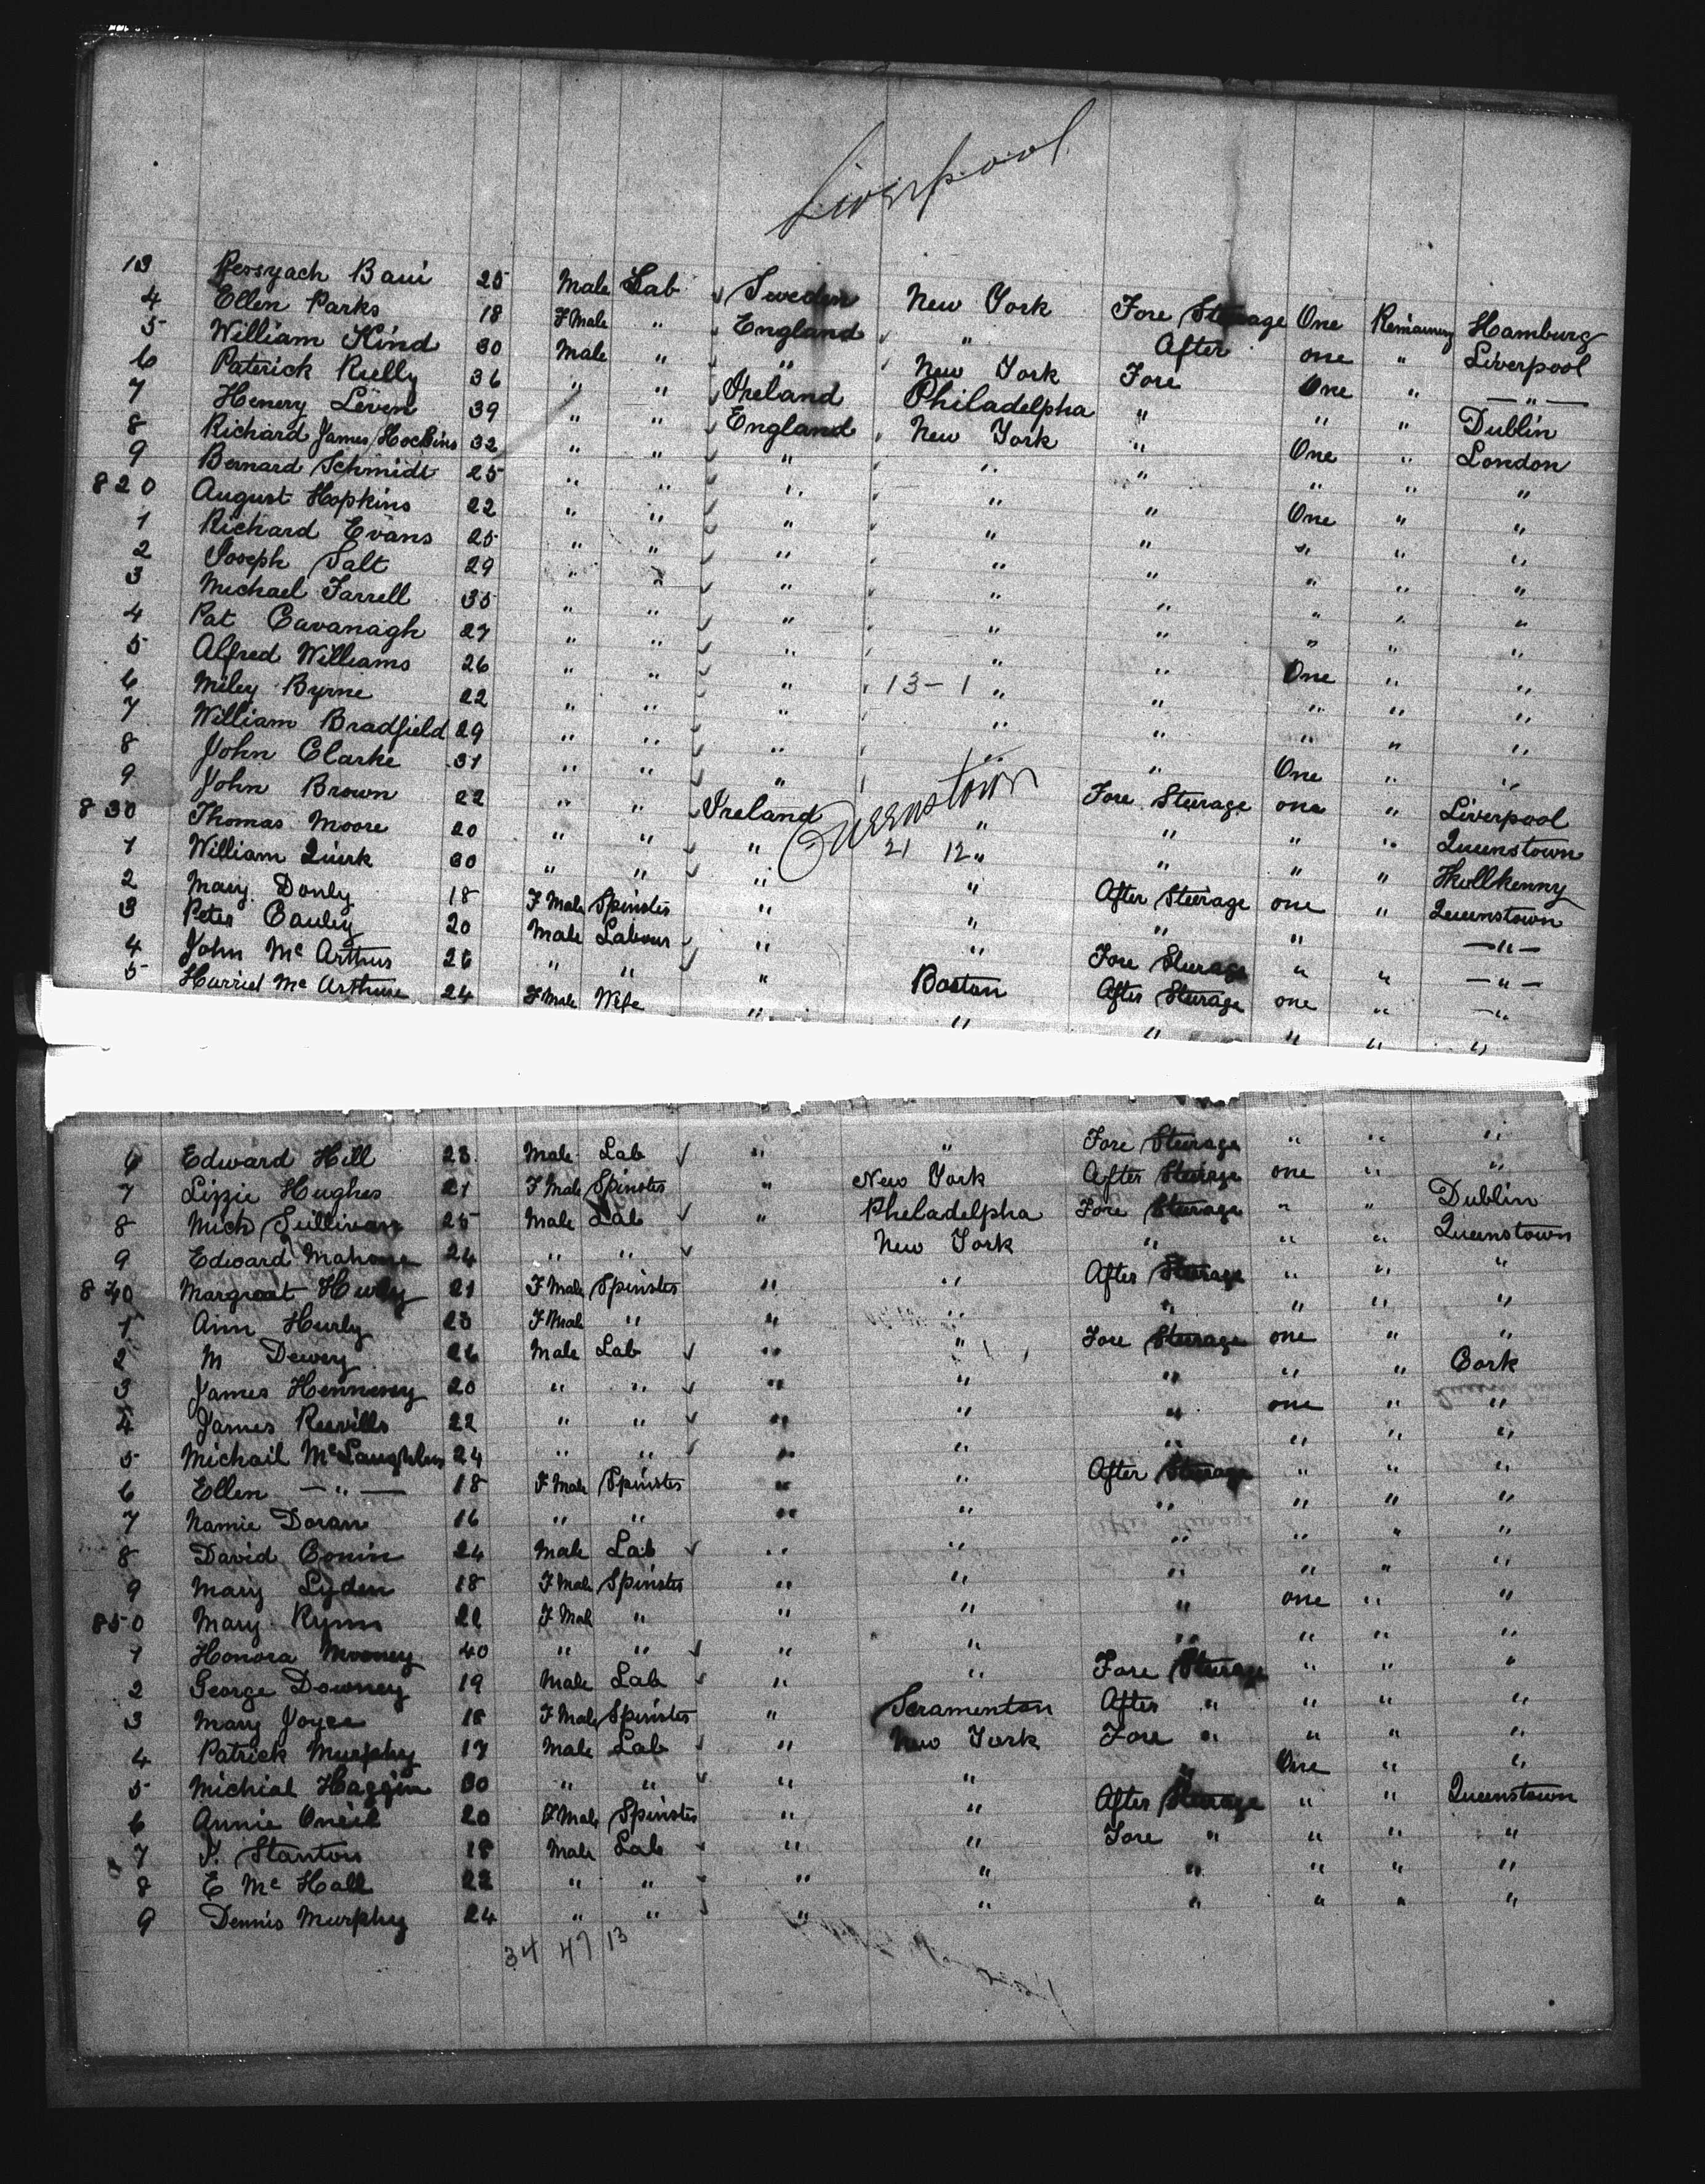 Liverpool
13 Baui 25 Male Lab Sweden New York Fore Steerage One Hamburg
4 Ellen Parks 18 F Male " England " After one " Liverpool
5 William Kind 30 Male " " New York Fore One " — " —
6 Paterick Rielly 36 " " Ireland Philadelpha " " " Dublin
7 Henery Leven 39 " " England New York " One " London
8 Richard James Hockins 32 " " " " " " " "
9 Bernard Schmidt 25 " " " " " One " "
820 August Hopkins 22 " " " " " " " "
1 Richard Evans 25 " " " " " " " "
2 Joseph Salt 29 " " " " " " " "
3 Michael Farrell 35 " " " " " " " "
4 Pat Cavanagh 27 " " " " " One " "
5 Alfred Williams 26 " " " 13-1 " " " " "
6 Miley Byrne 22 " " " " " " " "
7 William Bradfield 29 " " " " " One " "
8 John Clarke 31 " " " " Fore Steurage one " Liverpool
9 John Brown 22 " " Ireland " " " " Queenstown
Queenstown
830 Thomas Moore 20 " " " 21 12 " " " "
1 William Quirk 30 " " " " After Steerage one " Queenstown
2 Mary Donly 18 F Male Spinster " " " " — " —
3 Peter Cauley 20 Male Labour " " Fore Steurage " " — " —
4 John Mc Arthur 26 " " " Boston After Steurage one " — "
5 Harriet Mc Arthur 24 F Male Wife " " " " " "
6 Edward Hill 23 Male Lab " " Fore Steurage " " "
7 Lizzie Hughes 21 F Male Spinster " New York After Steurage one " "
8 Mich Sullivan 25 Male Lab " Pheladelpha Fore Steurage " " Dublin
9 Edward Mahone 24 " " New York " " " Queenstown
840 Margreat Hurly 21 F Male Spinster " " After Steurage " " "
1 Ann Hurly 23 F Male " " " " " " "
2 M Dewey 26 Male Lab " " Fore Steurage one " "
3 James Hennesey 20 " " " " " " " Cork
4 James 22 " " " " " one " "
5 Michail McLaughlin 24 " " " " " " " "
6 Ellen — " — 18 F Male Spinster " " After Steurage " " "
7 Namie Doran 16 " " " " " " " "
8 David Conin 24 Male Lab " " " " " "
9 Mary Lyden 18 F Male Spinster " " " " " "
850 Mary Rynn 22 F Mal " " " " one " "
1 Honora Mooney 40 " " " " " " " "
2 George Downey 19 Male Lab " " Fore Steurage " " "
3 Mary Joyce 18 F Male Spinster " Scramenton After " " " "
4 Patrick Murphy 17 Male Lab " New York Fore " " " "
5 Michial Haggin 30 " " " " " One " "
6 Annie Oneil 20 F Male Spinster " " After Steurage " " Queenstown
7 P. Stanton 18 Male Lab " " Fore " " " "
8 E Mc Hall 22 " " " " " " " "
9 Dennis Murphy 24 " " " " " " " "
34 47 13